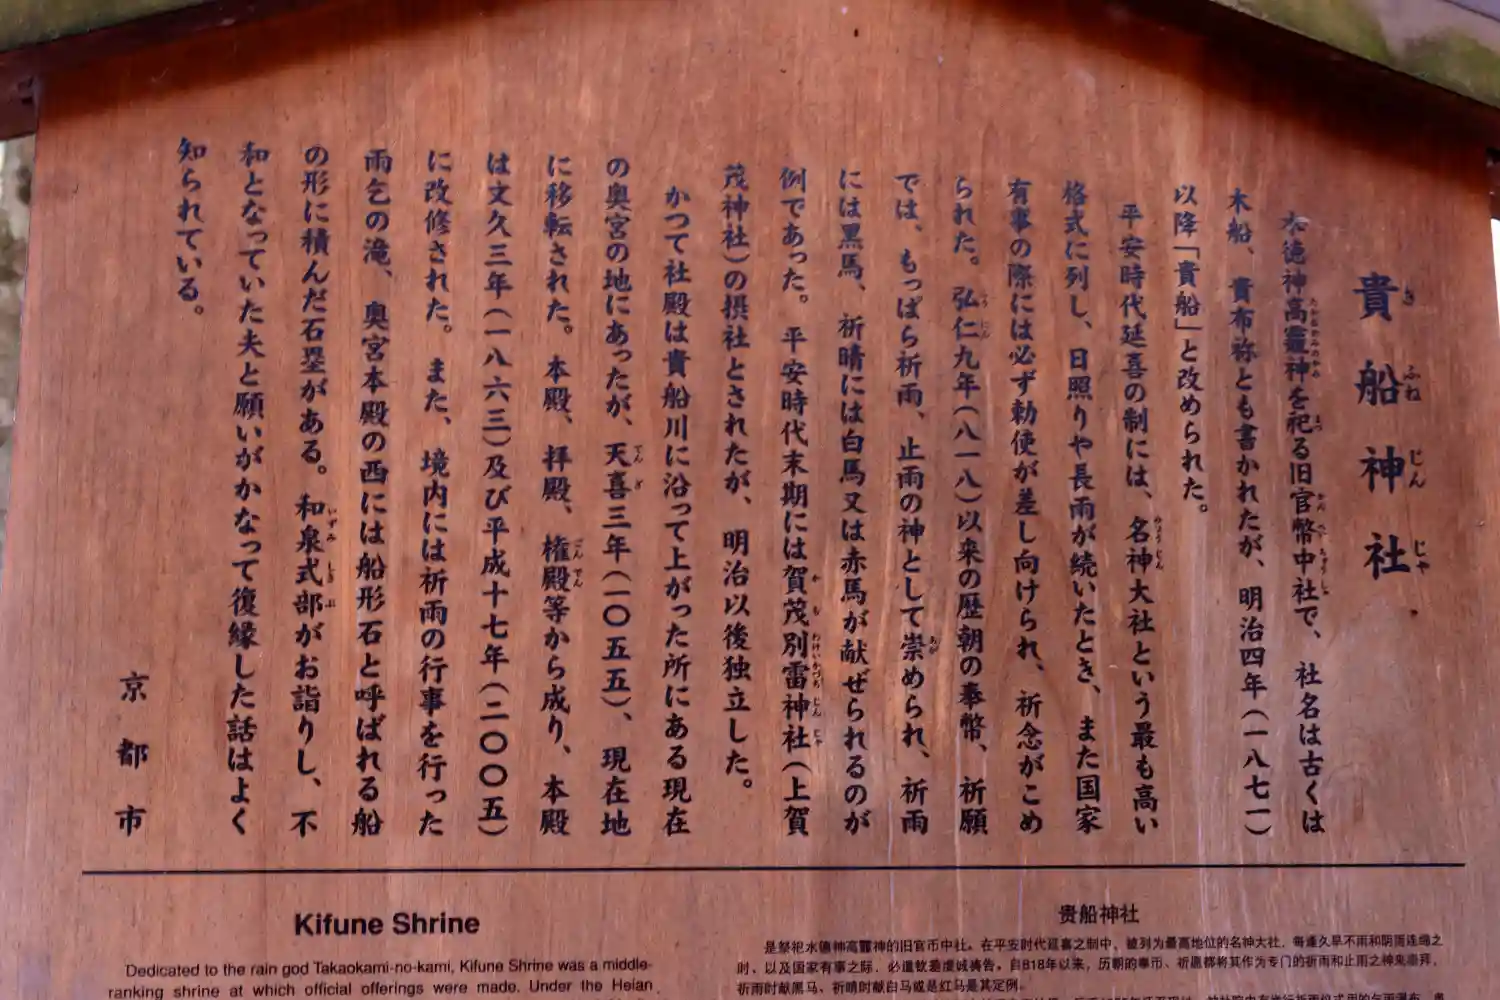 貴船神社
水徳神高龗神を祀る旧官幣中社で、社名は古くは
木船、貴布祢とも書かれたが、明治四年(一八七一)
以降「貴船」と改められた。
平安時代延喜の制には、名神大社という最も高い
格式に列し、日照りや長雨が続いたとき、また国家
有事の際には必ず勅使が差し向けられ、祈念がこめ
られた。弘仁九年(八一八)以来の歴朝の奉幣、祈願
では、もっぱら祈雨、止雨の神として崇められ、祈雨
には黒馬、祈晴には白馬又は赤馬が献ぜられるのが
例であった。平安時代末期には賀茂別雷神社(上賀
茂神社)の摂社とされたが、明治以後独立した。
かつて社殿は貴船川に沿って上がった所にある現在
の奥宮の地にあったが、天喜三年(一〇五五)、現在地
に移転された。本殿、拝殿、権殿等から成り、本殿
は文久三年(一八六三)及び平成十七年(二〇〇五)
に改修された。また、境内には祈雨の行事を行った
雨乞の滝、奥宮本殿の西には船形石と呼ばれる船
の形に積んだ石塁がある。和泉式部がお詣りし、不
和となっていた夫と願いがかなって復縁した話はよく
知られている。
京都市
Kifune Shrine
Dedicated to the rain god Takaokami-no-kami, Kifune Shrine was a middle-
ranking shrine at which official offerings were made. Under the Heian
贵船神社
是祭祀水德神高龗神的旧官币中社。在平安时代延喜之制中，被列为最高地位的名神大社。每逢久旱不雨和阴雨连绵之
时，以及国家有事之际，必遣钦差虔诚祷告。自818年以来，历朝的奉币、祈愿都将其作为专门的祈雨和止雨之神来崇拜，
祈雨时献黑马、祈晴时献白马或是红马是其定例。